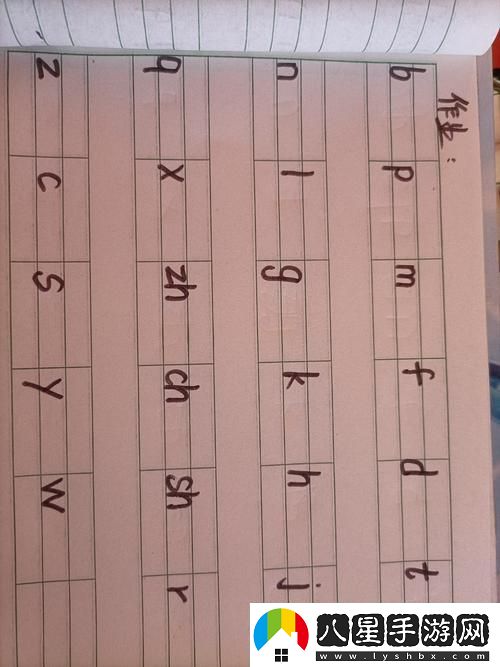 作业:
b p m f d t
n l g k h j
q x zh ch sh r
z c s y w
八星手游网
www.lyshbx.com